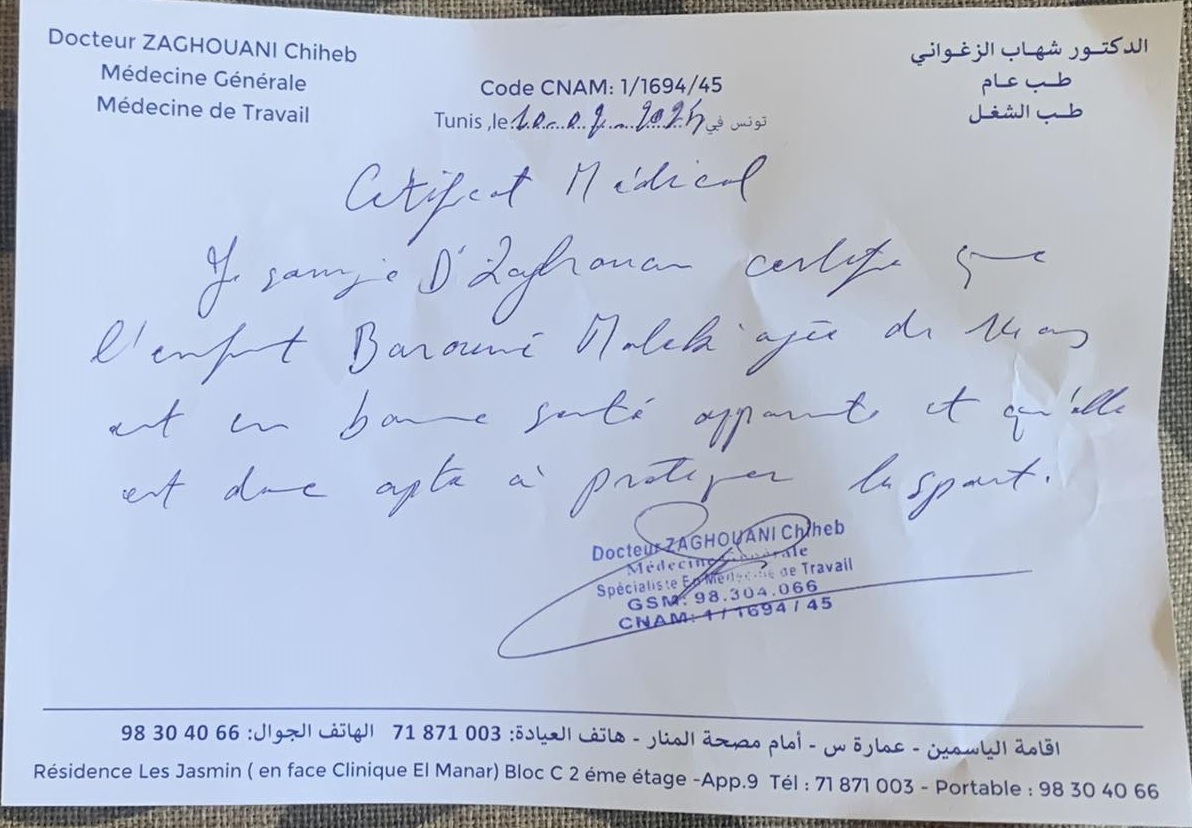 Docteur ZAGHOUANI Chiheb
Médecine Générale
Médecine de Travail
الدكتور شهاب الزغواني
طب عام
طب الشغل
Code CNAM: 1/1694/45
Tunis ,le: تونس في
Certificat Médical
Je soussigné Dr Zaghouani certifie que
l'enfant Barouni Malek agée de ans
est en bonne santé apparente et qu'elle
est donc apte à pratiquer le sport.
Docteur ZAGHOUANI Chiheb
Médecine Générale
Spécialiste En Médecine de Travail
GSM: 98.304.066
CNAM: 1/1694/45
اقامة الياسمين - عمارة س - أمام مصحة المنار - هاتف العيادة: 003 871 71 الهاتف الجوال: 66 40 30 98
Résidence Les Jasmin ( en face Clinique El Manar) Bloc C 2 éme étage -App.9 Tél : 71 871 003 - Portable : 98 30 40 66